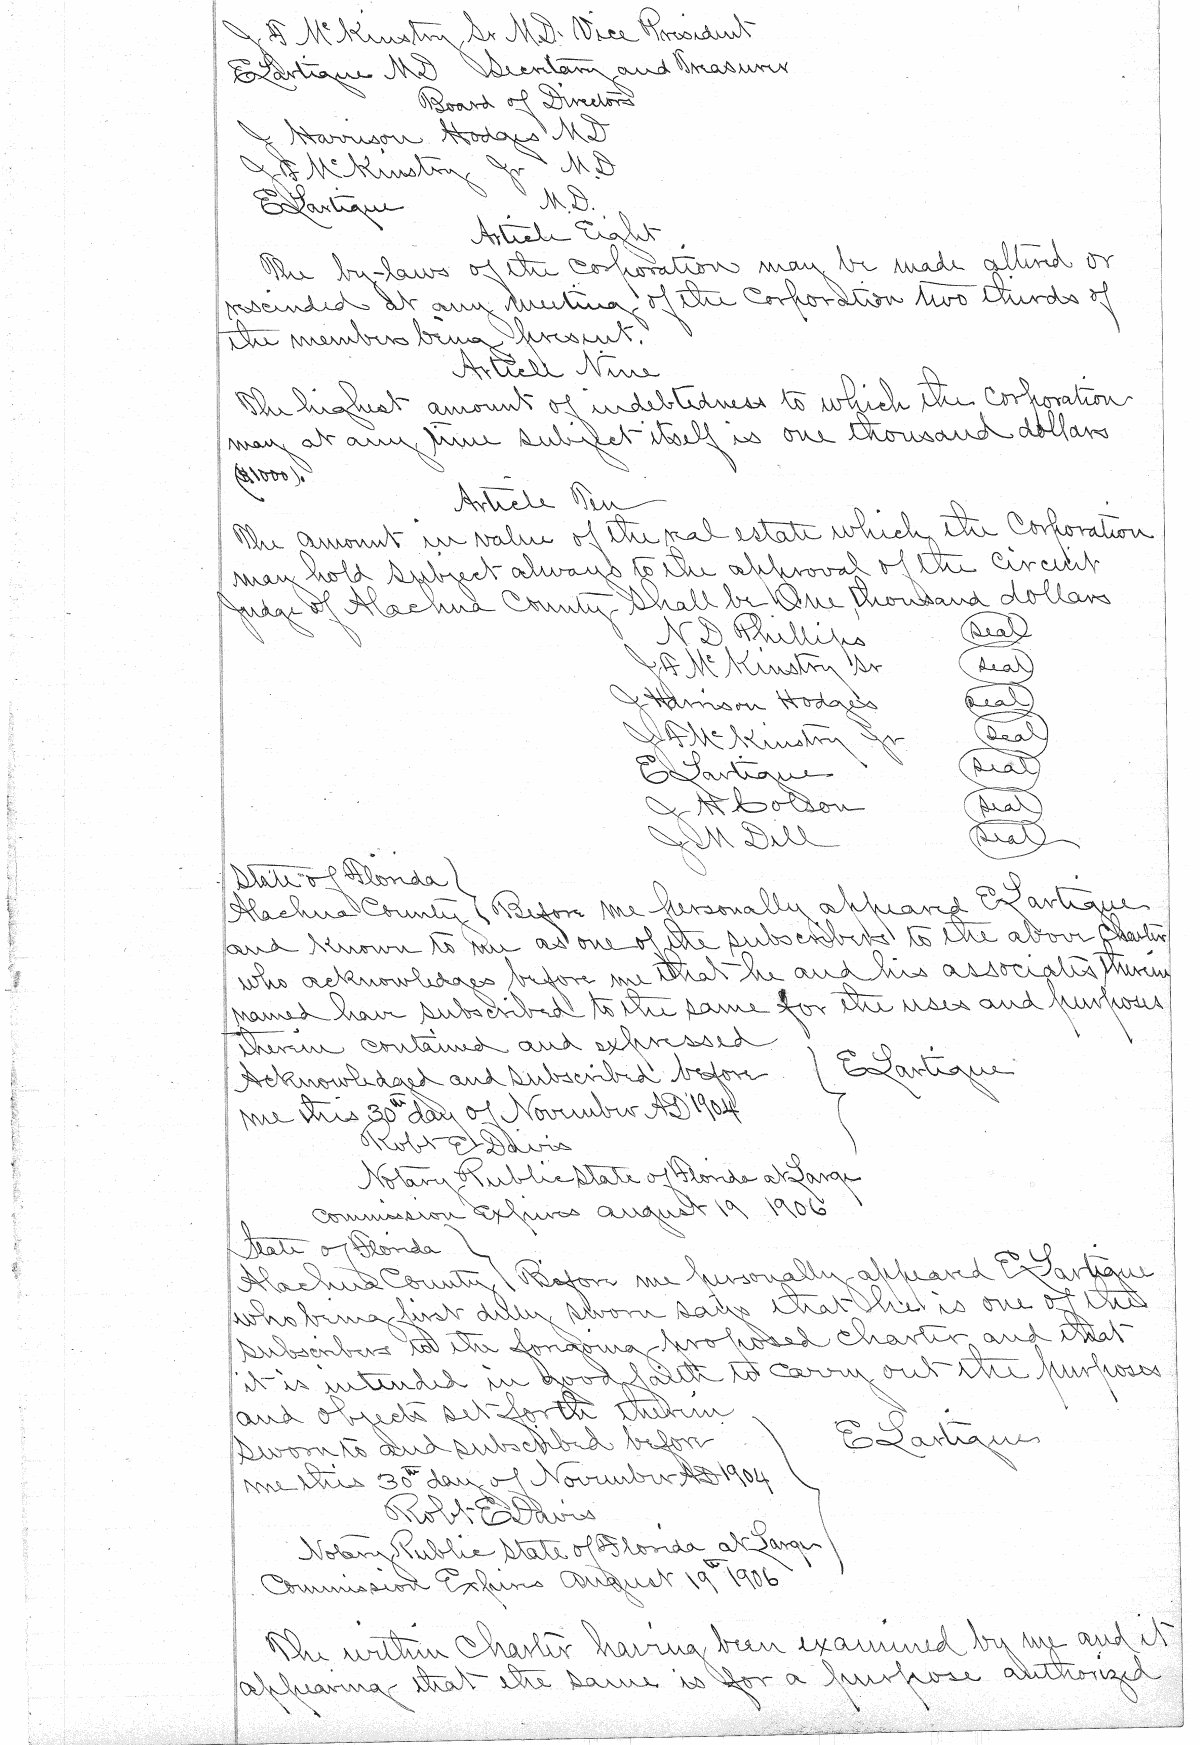 J F McKinstry Sr M.D. Vice President
E Lartigue M D Secretary and Treasurer
Board of Directors
J Harrison Hodges M D
J F McKinstry Jr M.D
E Lartigue M.D.
Article Eight
The by-laws of the corporation may be made altered or
rescinded at any meeting of the corporation two thirds of
the members being present.
Article Nine
The highest amount of indebtedness to which the corporation
may at any time subject itself is one thousand dollars
($1000).
Article Ten
The amount in value of the real estate which the Corporation
may hold subject always to the approval of the circuit
Judge of Alachua County Shall be One thousand dollars
N D Phillips Seal
J F McKinstry Sr Seal
J Harrison Hodges Seal
J F McKinstry Jr Seal
E Lartigue Seal
J H Colson Seal
J M Dell Seal
State of Florida
Alachua County Before me personally appeared E Lartigue
and known to me as one of the subscribers to the above Charter
who acknowledges before me that he and his associates therein
named have subscribed to the same for the uses and purposes
therein contained and expressed
Acknowledged and subscribed before E Lartigue
me this 30th day of November AD 1904
Robt E Davis
Notary Public State of Florida at Large
Commission Expires August 19 1906
State of Florida
Alachua County Before me personally appeared E Lartigue
who being first duly sworn says that he is one of the
subscribers to the forgoing proposed charter and that
it is intended in good faith to carry out the purposes
and objects set forth therein
Sworn to and subscribed before E Lartigue
me this 30th day of November AD 1904
Robt E Davis
Notary Public State of Florida at Large
Commission Expires August 19th 1906
The within Charter having been examined by me and it
appearing that the same is for a purpose authorized